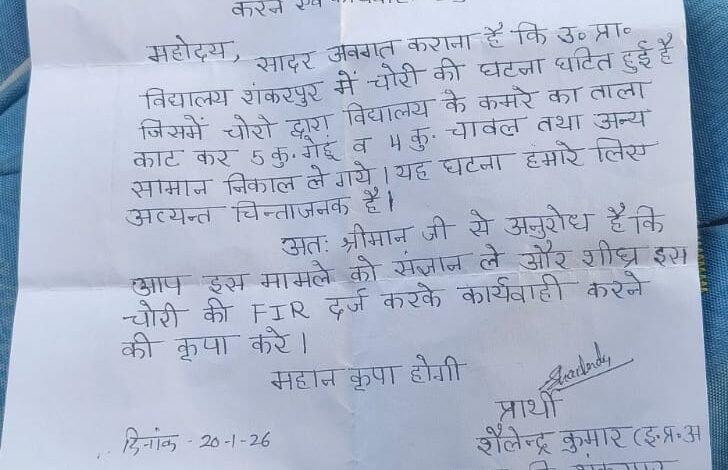 करने एवं
महोदय, सादर अवगत कराना है कि उ० प्रा०
विद्यालय शंकरपुर में चोरी की घटना घटित हुई है
जिसमें चोरो द्वारा विद्यालय के कमरे का ताला
काट कर 5 कु. गेहूं व 4 कु. चावल तथा अन्य
सामान निकाल ले गये। यह घटना हमारे लिए
अत्यन्त चिन्ताजनक है।
अतः श्रीमान जी से अनुरोध है कि
आप इस मामले को संज्ञान ले और शीघ्र इस
चोरी की FIR दर्ज करके कार्यवाही करने
की कृपा करे।
महान कृपा होगी
प्रार्थी
दिनांक - 20-1-26
शैलेन्द्र कुमार (इ.प्र.अ